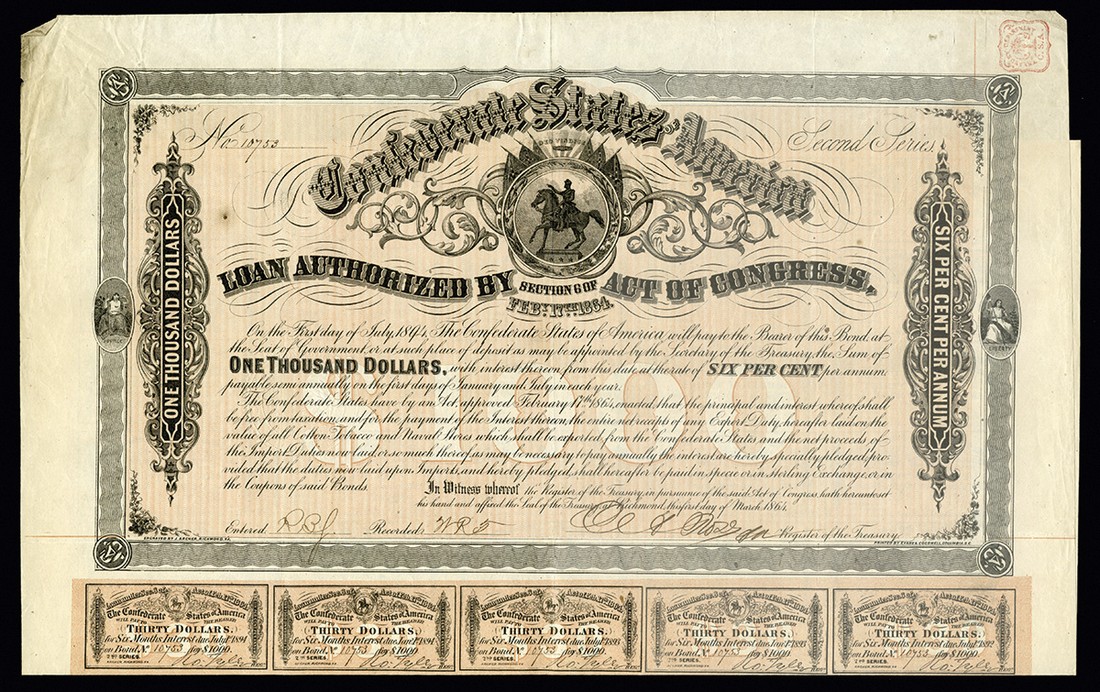 Confederate States America
No. 10753
Second Series.
DEO VINDICE
ONE THOUSAND DOLLARS
SIX PER CENT PER ANNUM
LOAN AUTHORIZED BY SECTION 6 OF ACT OF CONGRESS,
FEBY. 17TH. 1864.
On the First day of July, 1894, The Confederate States of America will pay to the Bearer of this Bond, at
the Seat of Government or at such place of deposit as may be appointed by the Secretary of the Treasury, the Sum of
ONE THOUSAND DOLLARS, with interest thereon from this date at the rate of SIX PER CENT per annum,
payable semi annually on the first days of January and July in each year.
$1000
The Confederate States have by an Act, approved February 17th 1864, enacted, that the principal and interest whereof shall
be free from taxation, and for the payment of the Interest thereon, the entire net receipts of any Export Duty, hereafter laid on the
value of all Cotton Tobacco and Naval Stores which shall be exported from the Confederate States and the net proceeds of
the Import Duties now laid, or so much thereof as may be necessary to pay annually the interest are hereby specially pledged, pro-
vided that the duties now laid upon Imports, and hereby pledged, shall hereafter be paid in specie or in Sterling Exchange, or in
the Coupons of said Bonds.
In Witness whereof the Register of the Treasury, in pursuance of the said Act of Congress, hath hereunto set
his hand and affixed the Seal of the Treasury, at Richmond, this first day of March 1864.
Entered Recorded Register of the Treasury
ENGRAVED BY J. ARCHER, RICHMOND, VA.
PRINTED BY EVANS & COGSWELL, COLUMBIA, S.C.
The Confederate States of America
WILL PAY TO THE BEARER
THIRTY DOLLARS,
for Six Months Interest due July 1st 1894
on Bond No. 10753 for $1000.
2ND SERIES.
The Confederate States of America
WILL PAY TO THE BEARER
THIRTY DOLLARS,
for Six Months Interest due Jany 1st 1894
on Bond No. 10753 for $1000.
2ND SERIES.
The Confederate States of America
WILL PAY TO THE BEARER
THIRTY DOLLARS,
for Six Months Interest due July 1st 1893
on Bond No. 10753 for $1000.
2ND SERIES.
The Confederate States of America
WILL PAY TO THE BEARER
THIRTY DOLLARS,
for Six Months Interest due Jany 1st 1893
on Bond No. 10753 for $1000.
2ND SERIES.
The Confederate States of America
WILL PAY TO THE BEARER
THIRTY DOLLARS,
for Six Months Interest due July 1st 1892
on Bond No. 10753 for $1000.
2ND SERIES.